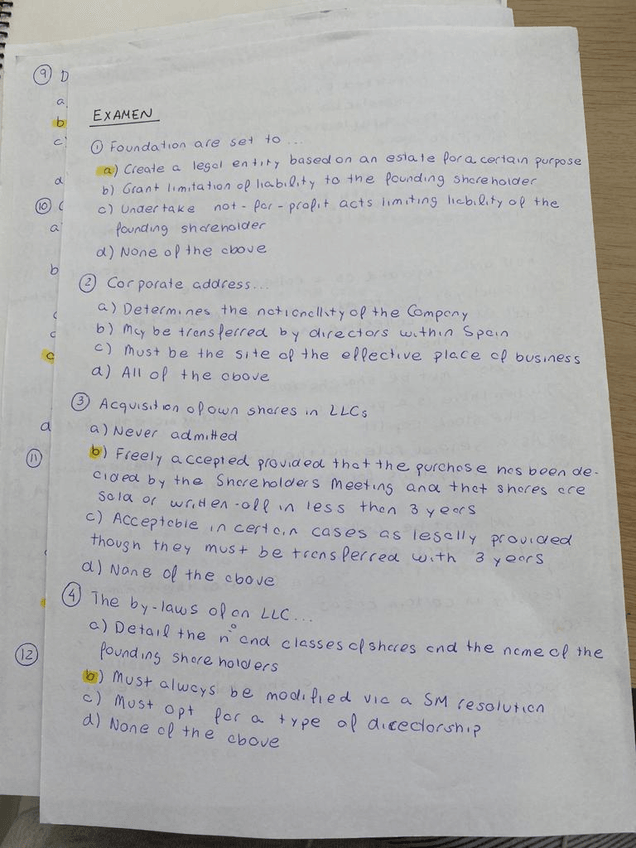 EXAMEN
① Foundation are set to ...
a) Create a legal entity based on an estate for a certain purpose
b) Grant limitation of liability to the founding shareholder
c) Undertake not-for-profit acts limiting liability of the
founding shareholder
d) None of the above
② Corporate address...
a) Determines the nationallity of the Company
b) May be transferred by directors within Spain
c) Must be the site of the effective place of business
d) All of the above
③ Acquisition of own shares in LLCs
a) Never admitted
b) Freely accepted provided that the purchase has been de-
cided by the Shareholders Meeting and that shares are
sold or written-off in less then 3 years
c) Acceptable in certain cases as legally provided
though they must be transferred with 3 years
d) None of the above
④ The by-laws of an LLC...
a) Detail the nº and classes of shares and the name of the
founding shareholders
b) Must always be modified via a SM resolution
c) Must opt for a type of directorship
d) None of the above
⑨ D
a
b
c
d
⑩
a
b
c
d
⑪
⑫